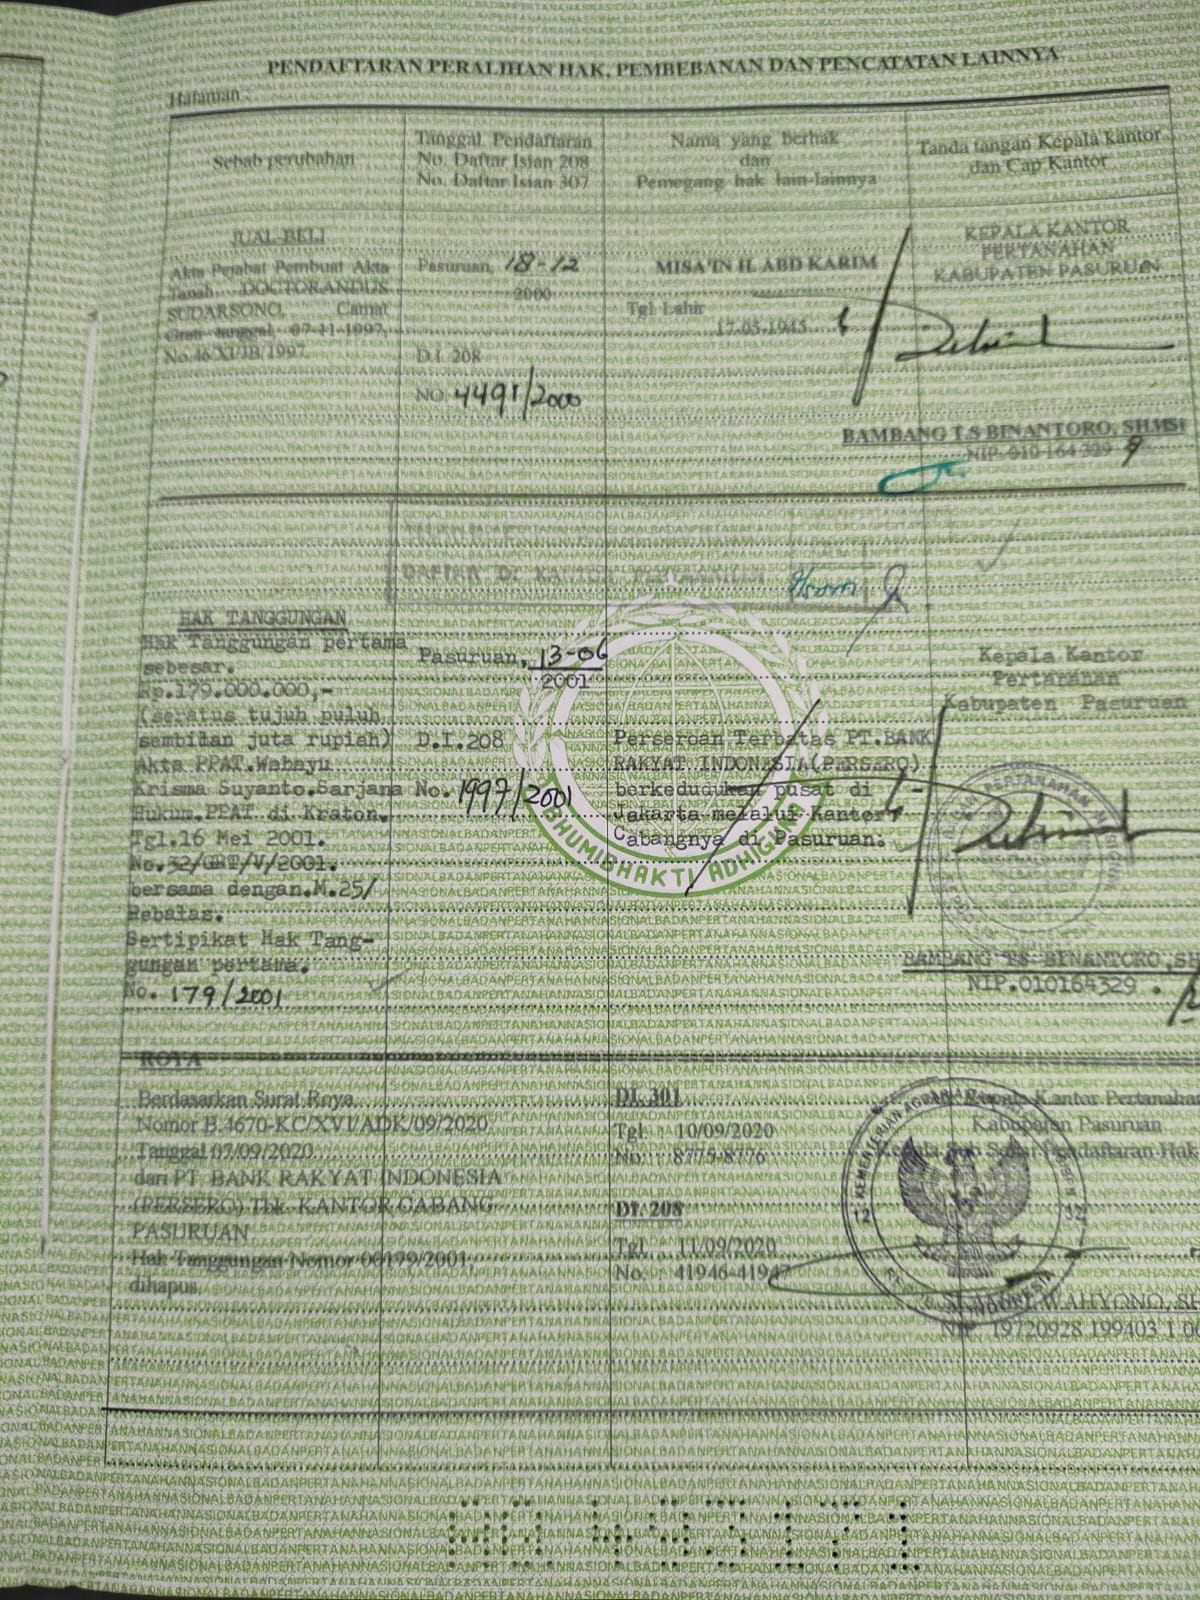 PENDAFTARAN PERALIHAN HAK, PEMBEBANAN DAN PENCATATAN LAINNYA
Halaman :
Sebab perubahan
Tanggal Pendaftaran
No. Daftar Isian 208
No. Daftar Isian 307
Nama yang berhak
dan
Pemegang hak lain-lainnya
Tanda tangan Kepala kantor
dan Cap Kantor
JUAL-BELI
Akta Pejabat Pembuat Akta
Tanah DOCTORANDUS
SUDARSONO, Camat
Grati tanggal 07-11-1997,
Pasuruan, 18-12
2000
D.I. 208
NO 4491/2000
MISA'IN H. ABD KARIM
Tgl Lahir
17-05-1945
KEPALA KANTOR
PERTANAHAN
KABUPATEN PASURUAN
BAMBANG T.S BINANTORO, SH.MSI
NIP. 010 164 329
HAK TANGGUNGAN
Hak Tanggungan pertama
sebesar.
Rp.179.000.000,-
(seratus tujuh puluh
sembilan juta rupiah)
Akta PPAT.Wahayu
Krisma Suyanto.Sarjana
Hukum.PPAT di Kraton.
Tgl.16 Mei 2001.
No.32/GRT/V/2001.
bersama dengan.M.25/
Rebalas.
Sertipikat Hak Tang-
gungan pertama.
No. 179/2001
Pasuruan, 13-06
2001
D.I.208
No. 1997/2001
Perseroan Terbatas PT.BANK
RAKYAT INDONESIA(PERSERO)
berkedudukan pusat di
Jakarta melalui Kantor
Cabangnya di Pasuruan.
BHUMI BHAKTI ADHIGUNA
Kepala Kantor
Pertanahan
Kabupaten Pasuruan
BAMBANG TS BINANTORO,SH
NIP.010164329
ROYA
Berdasarkan Surat Roya
Nomor B.4670-KC/XVI/ADK/09/2020
Tanggal 07/09/2020
dari PT. BANK RAKYAT INDONESIA
(PERSERO) Tbk. KANTOR CABANG
PASURUAN
Hak Tanggungan Nomor 00179/2001,
dihapus
DI. 301
Tgl : 10/09/2020
No. : 8775-8776
DI. 208
Tgl. : 11/09/2020
No. : 41946-41947
Kepala Kantor Pertanahan
Kabupaten Pasuruan
Kepala Sub Seksi Pendaftaran Hak
WAHYONO, SH
NIP. 19720928 199403 1 00